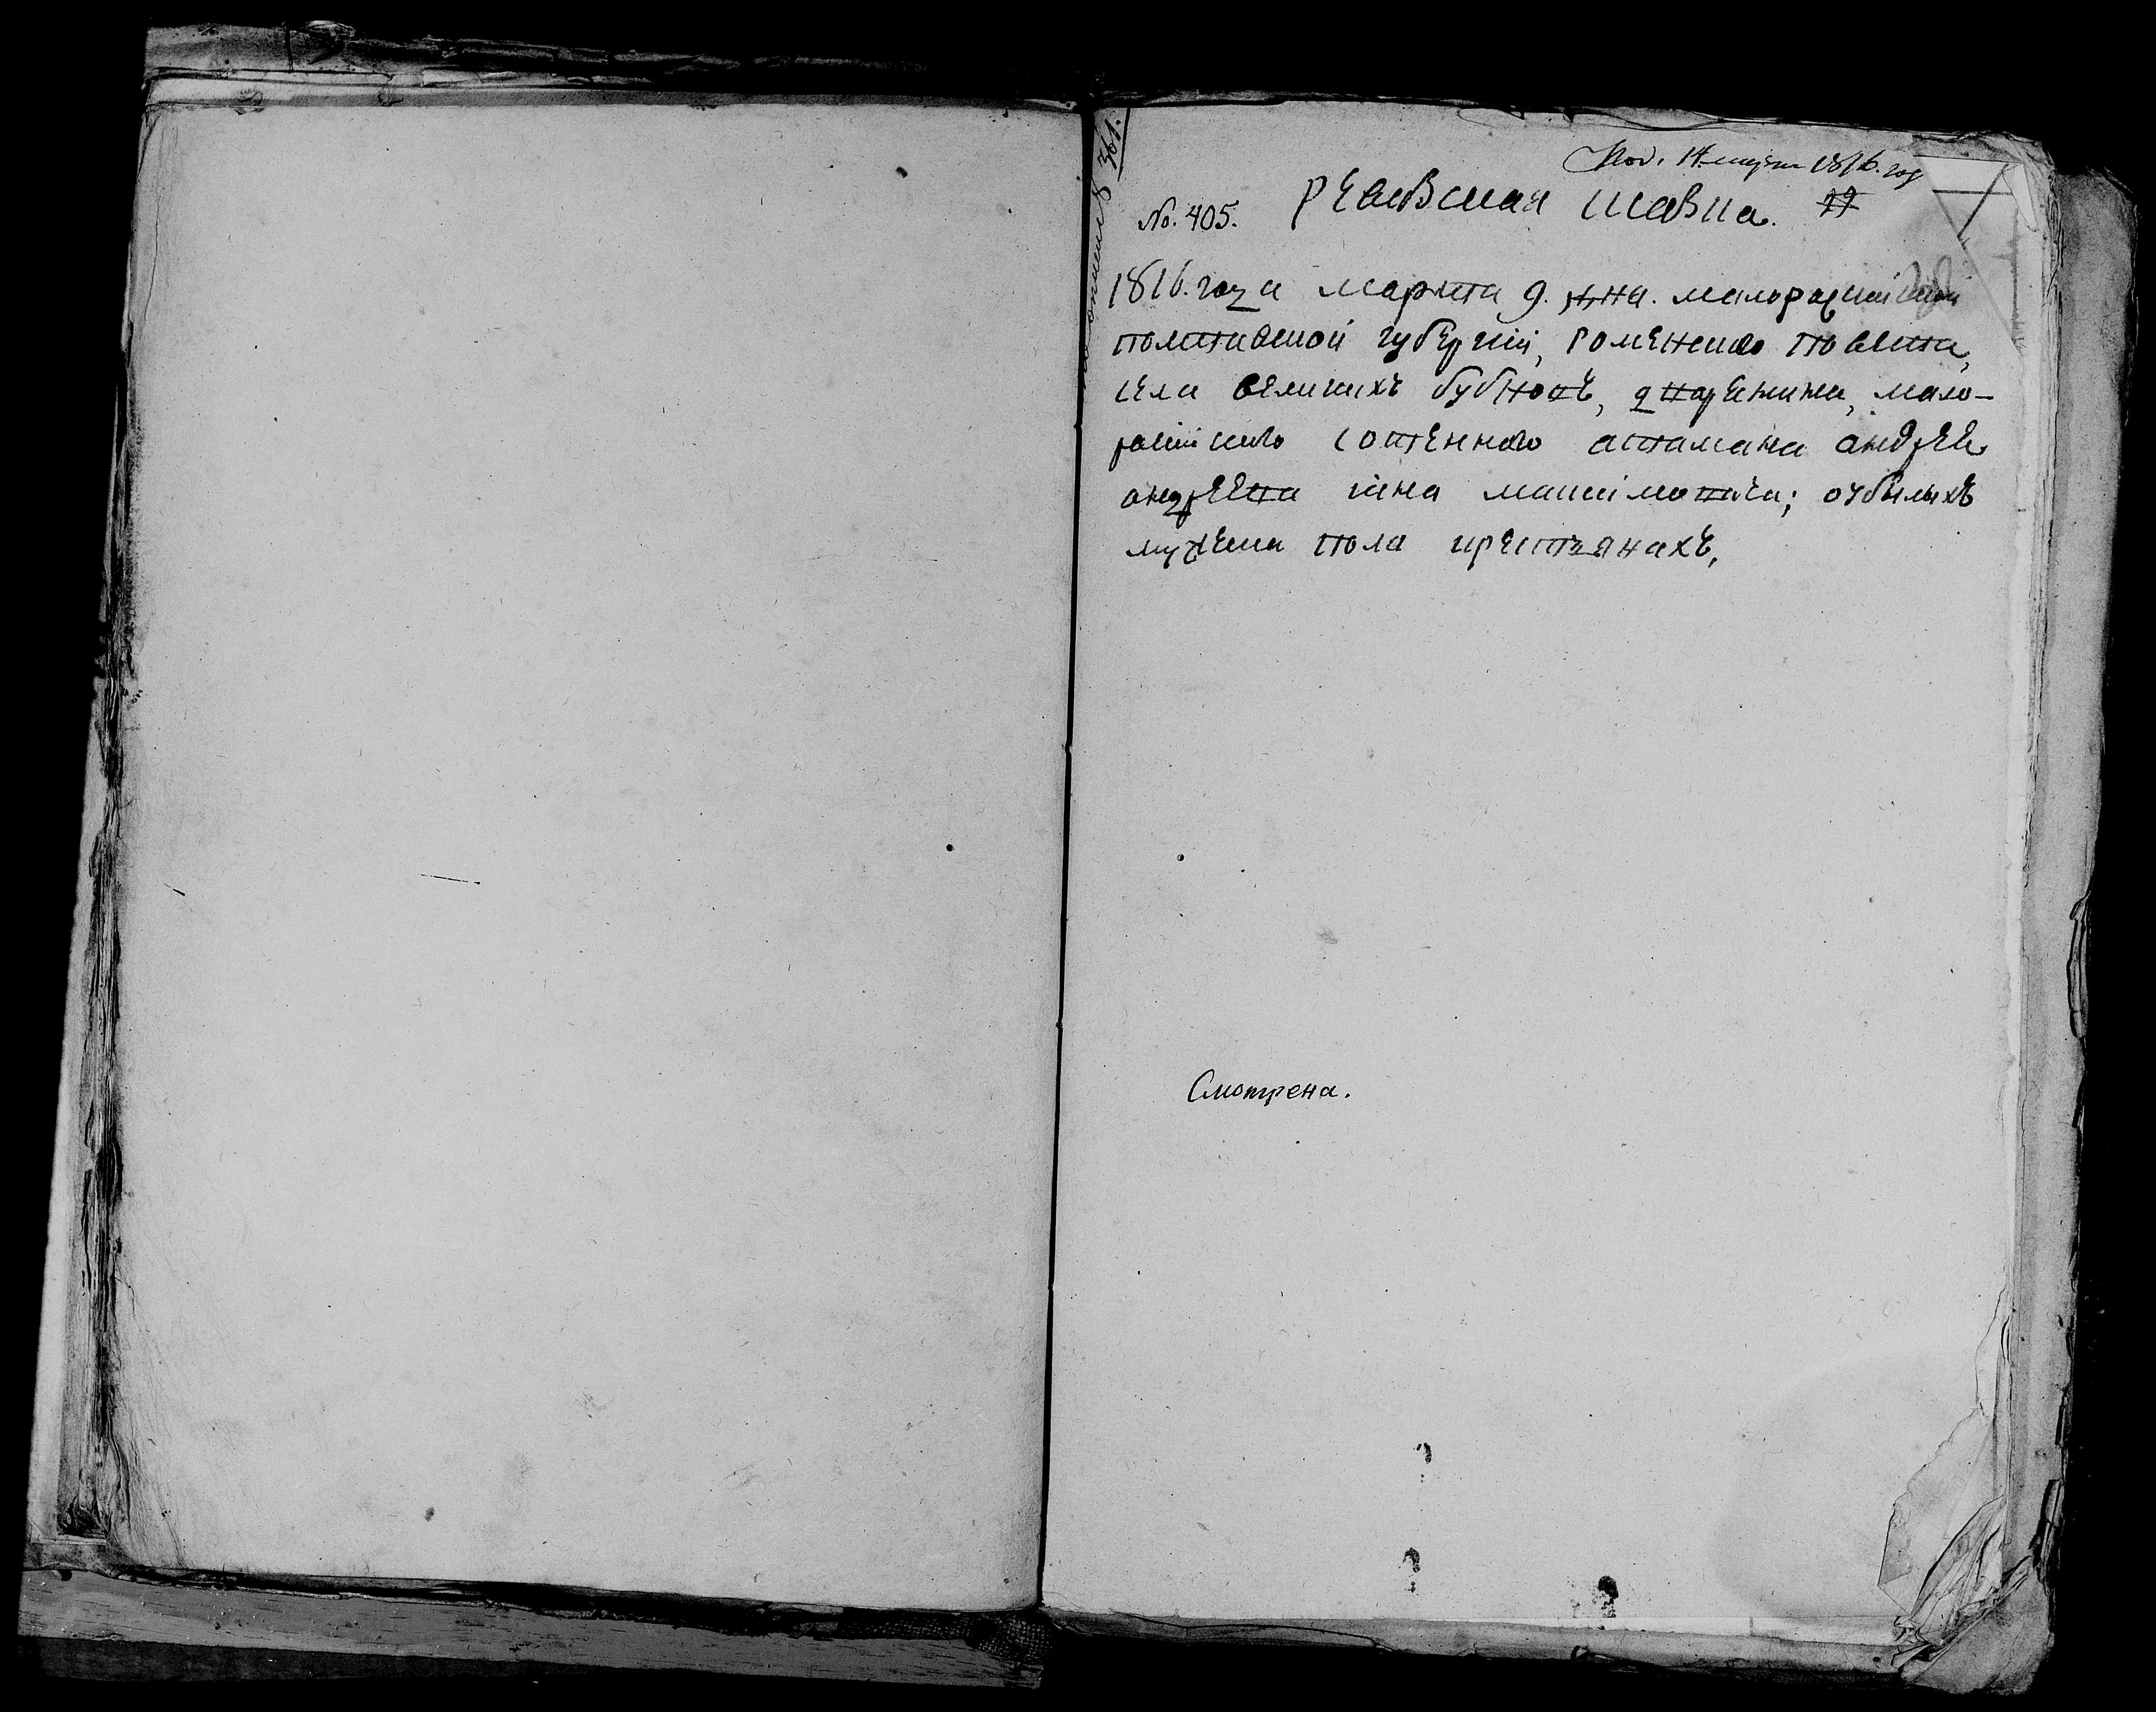 Под. 14 марта 1816. год
361.
No. 405. ревизская сказка. 27
1816. года марта 9. дня. малороссийской
полтавской губернии, роменского повета,
села великихъ бубновъ, дворянина, мало-
россійского сотенного атамана андрея
андреева сына максимовича; о убылыхъ
мужеска пола крестьянахъ,
Смотрена.